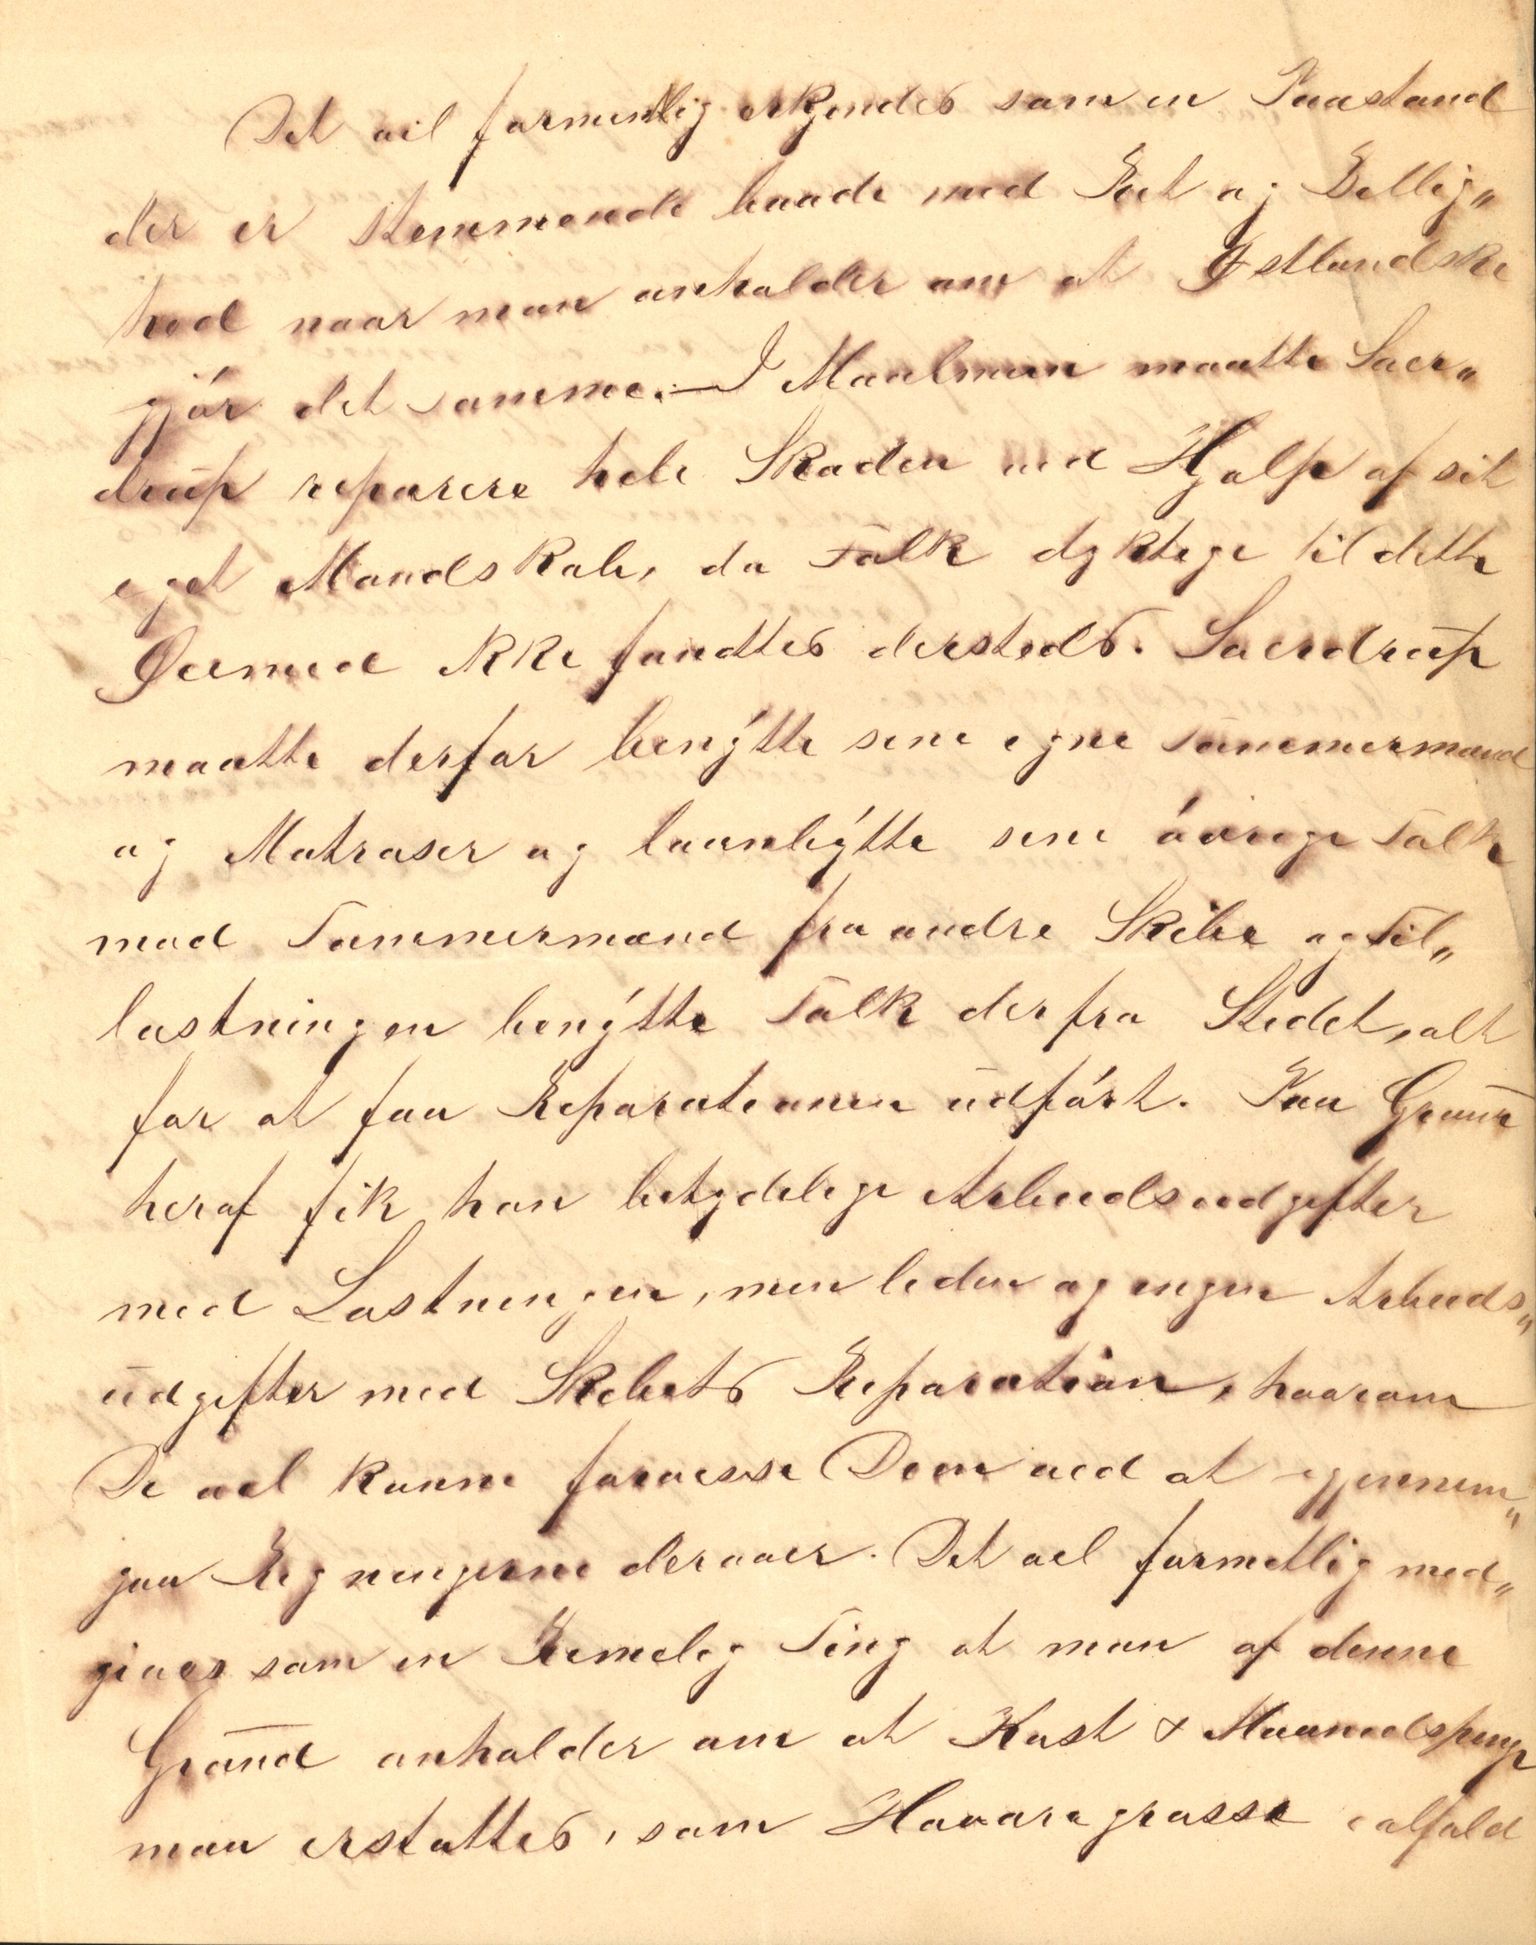 Det vil formentlig erkjendes som en Paastand
der er stemmende baade med Ret og Billig„
hed naar man anholder om at Østlandske
gjör det samme. — I Maulmain maatte Soer„
drup reparere hele Skaden ved Hjælp af sit
eget Mandskab, da Folk dygtige til dette
Øiemed ikke fandtes dersteds. Soerdrup
maatte derfor benytte sine egne Tömmermænd
og Matroser og laanbytte sine övrige Folk
mod Tömmermænd fra andre Skibe og til„
lastningen benytte Folk der fra Stedet, alt
for at faa Reparationen udfört. Paa Grund
heraf fik han betydelige Arbeidsudgifter
med Lastningen, men liden og ingen Arbeids„
udgifter med Skibets Reparation, hvorom
De vil kunne forvisse Dem ved at gjennem„
gaa Regningerne derover. Det vil formetlig med„
gives som en Rimelig Ting at man af denne
Grund anholder om at Kost & Maanedspenge
maa erstattes, som Havari grosse ialfald